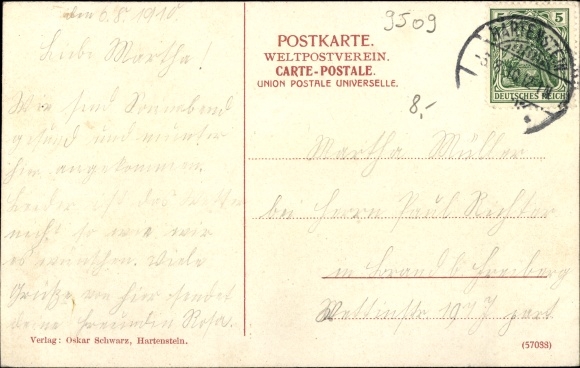 den 6.8.1910.
Liebe Martha!
Wir sind Sonnabend
gesund und munter
hier angekommen.
Leider ist das Wetter
nicht so wie wir
es wünschen. Viele
Grüße von hier sendet
deine Freundin Rosa.
Verlag: Oskar Schwarz, Hartenstein.
9509
POSTKARTE.
WELTPOSTVEREIN.
CARTE-POSTALE.
UNION POSTALE UNIVERSELLE.
8,-
5 5
DEUTSCHES REICH
HARTENSTEIN
Martha Müller
bei Herrn Paul Richter
in Brand b. Freiberg
Wettinstr part
(57033)